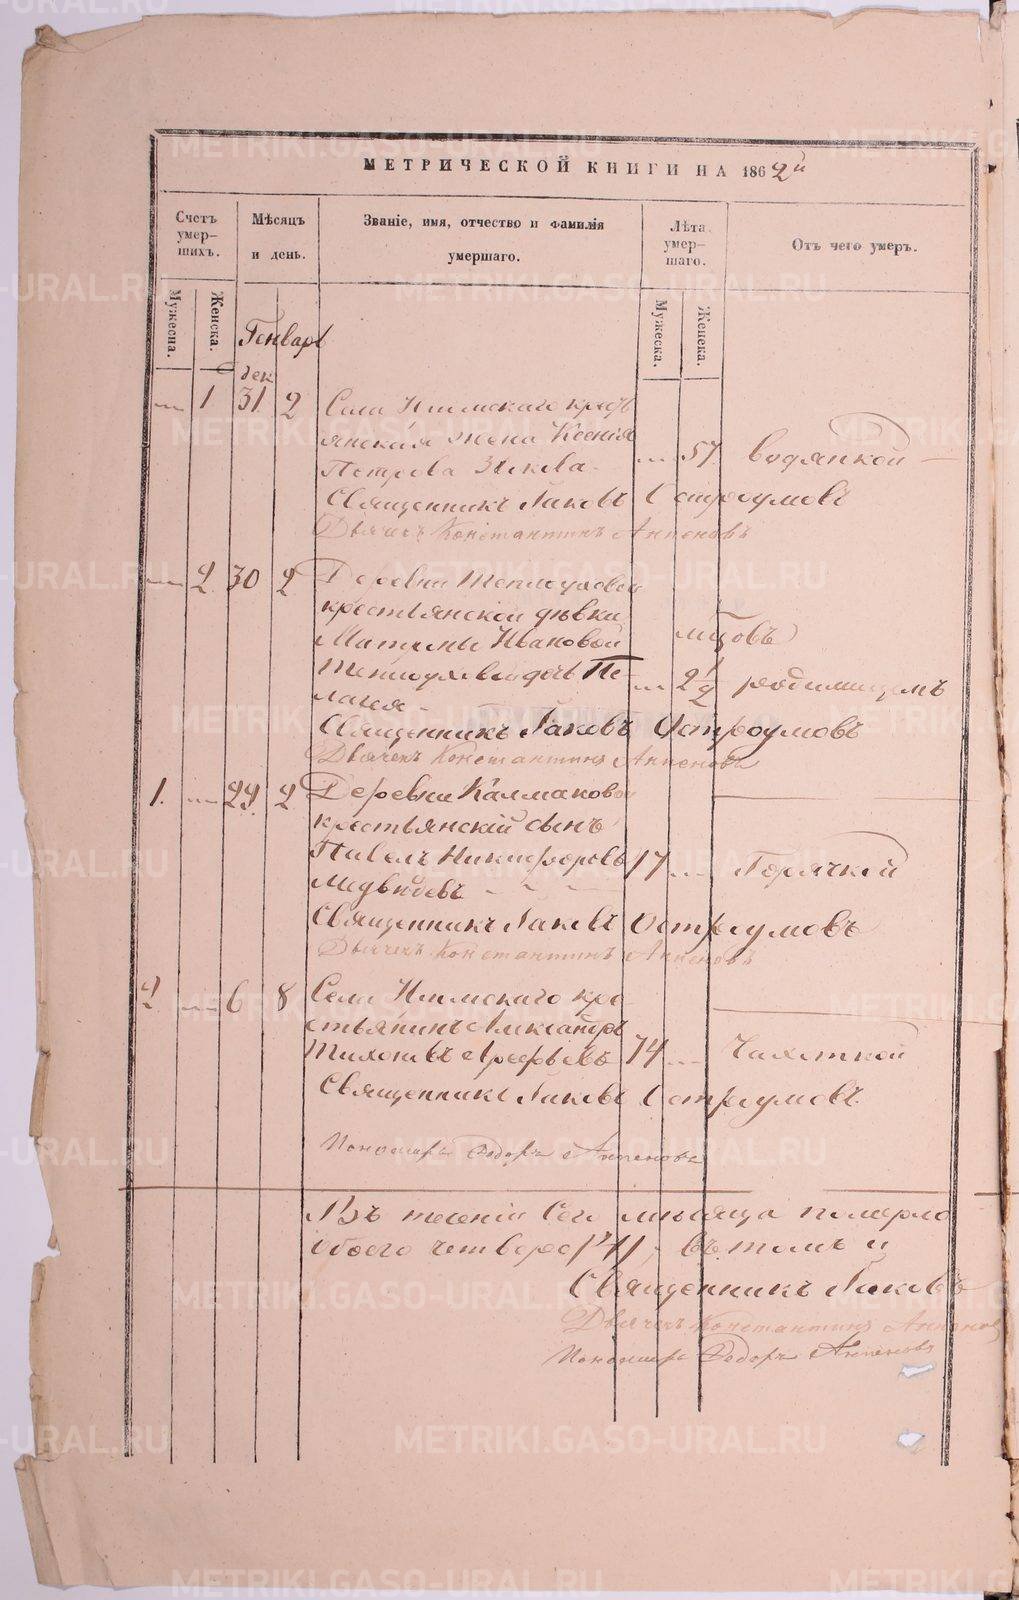 МЕТРИЧЕСКОЙ КНИГИ НА 1862й
Счетъ умер-шихъ.
Мѣсяцъ и день.
Званіе, имя, отчество и фамилія умершаго.
Лѣта умер-шаго.
Отъ чего умеръ.
Мужеска.
Женска.
Мужеска.
Женска.
Генварь
дек
1 31 2 Села Илимскаго кресть
янская жена Ксенія
Петрова 57 водянкой
Священникъ Іаковъ Остроумовъ
Дьячекъ Константинъ
2 30 2 Деревни Теплоуховой
крестьянской дѣвки
Матрены Ивановой мцовъ
дочь Пе-
лагея 2 1/2 родимицемъ
Священникъ Іаковъ Остроумовъ
Дьячекъ Константинъ
1. 29 2 Деревни Калмаковой
крестьянскій сынъ
Павелъ Никифоровъ 17 Горячкой
Медвѣдевъ
Священникъ Іаковъ Остроумовъ
Дьячекъ Константинъ
2 6 8 Села Илимскаго кре-
стьянинъ Александръ
Тихоновъ 74 Чахоткой
Священникъ Іаковъ Остроумовъ
Пономарь Федоръ
Въ теченіи Сего мѣсяца померло
Обоего четверо /4/, въ томъ и
Священникъ Іаковъ
Дьячекъ Константинъ
Пономарь Федоръ
METRIKI.GASO-URAL.RU